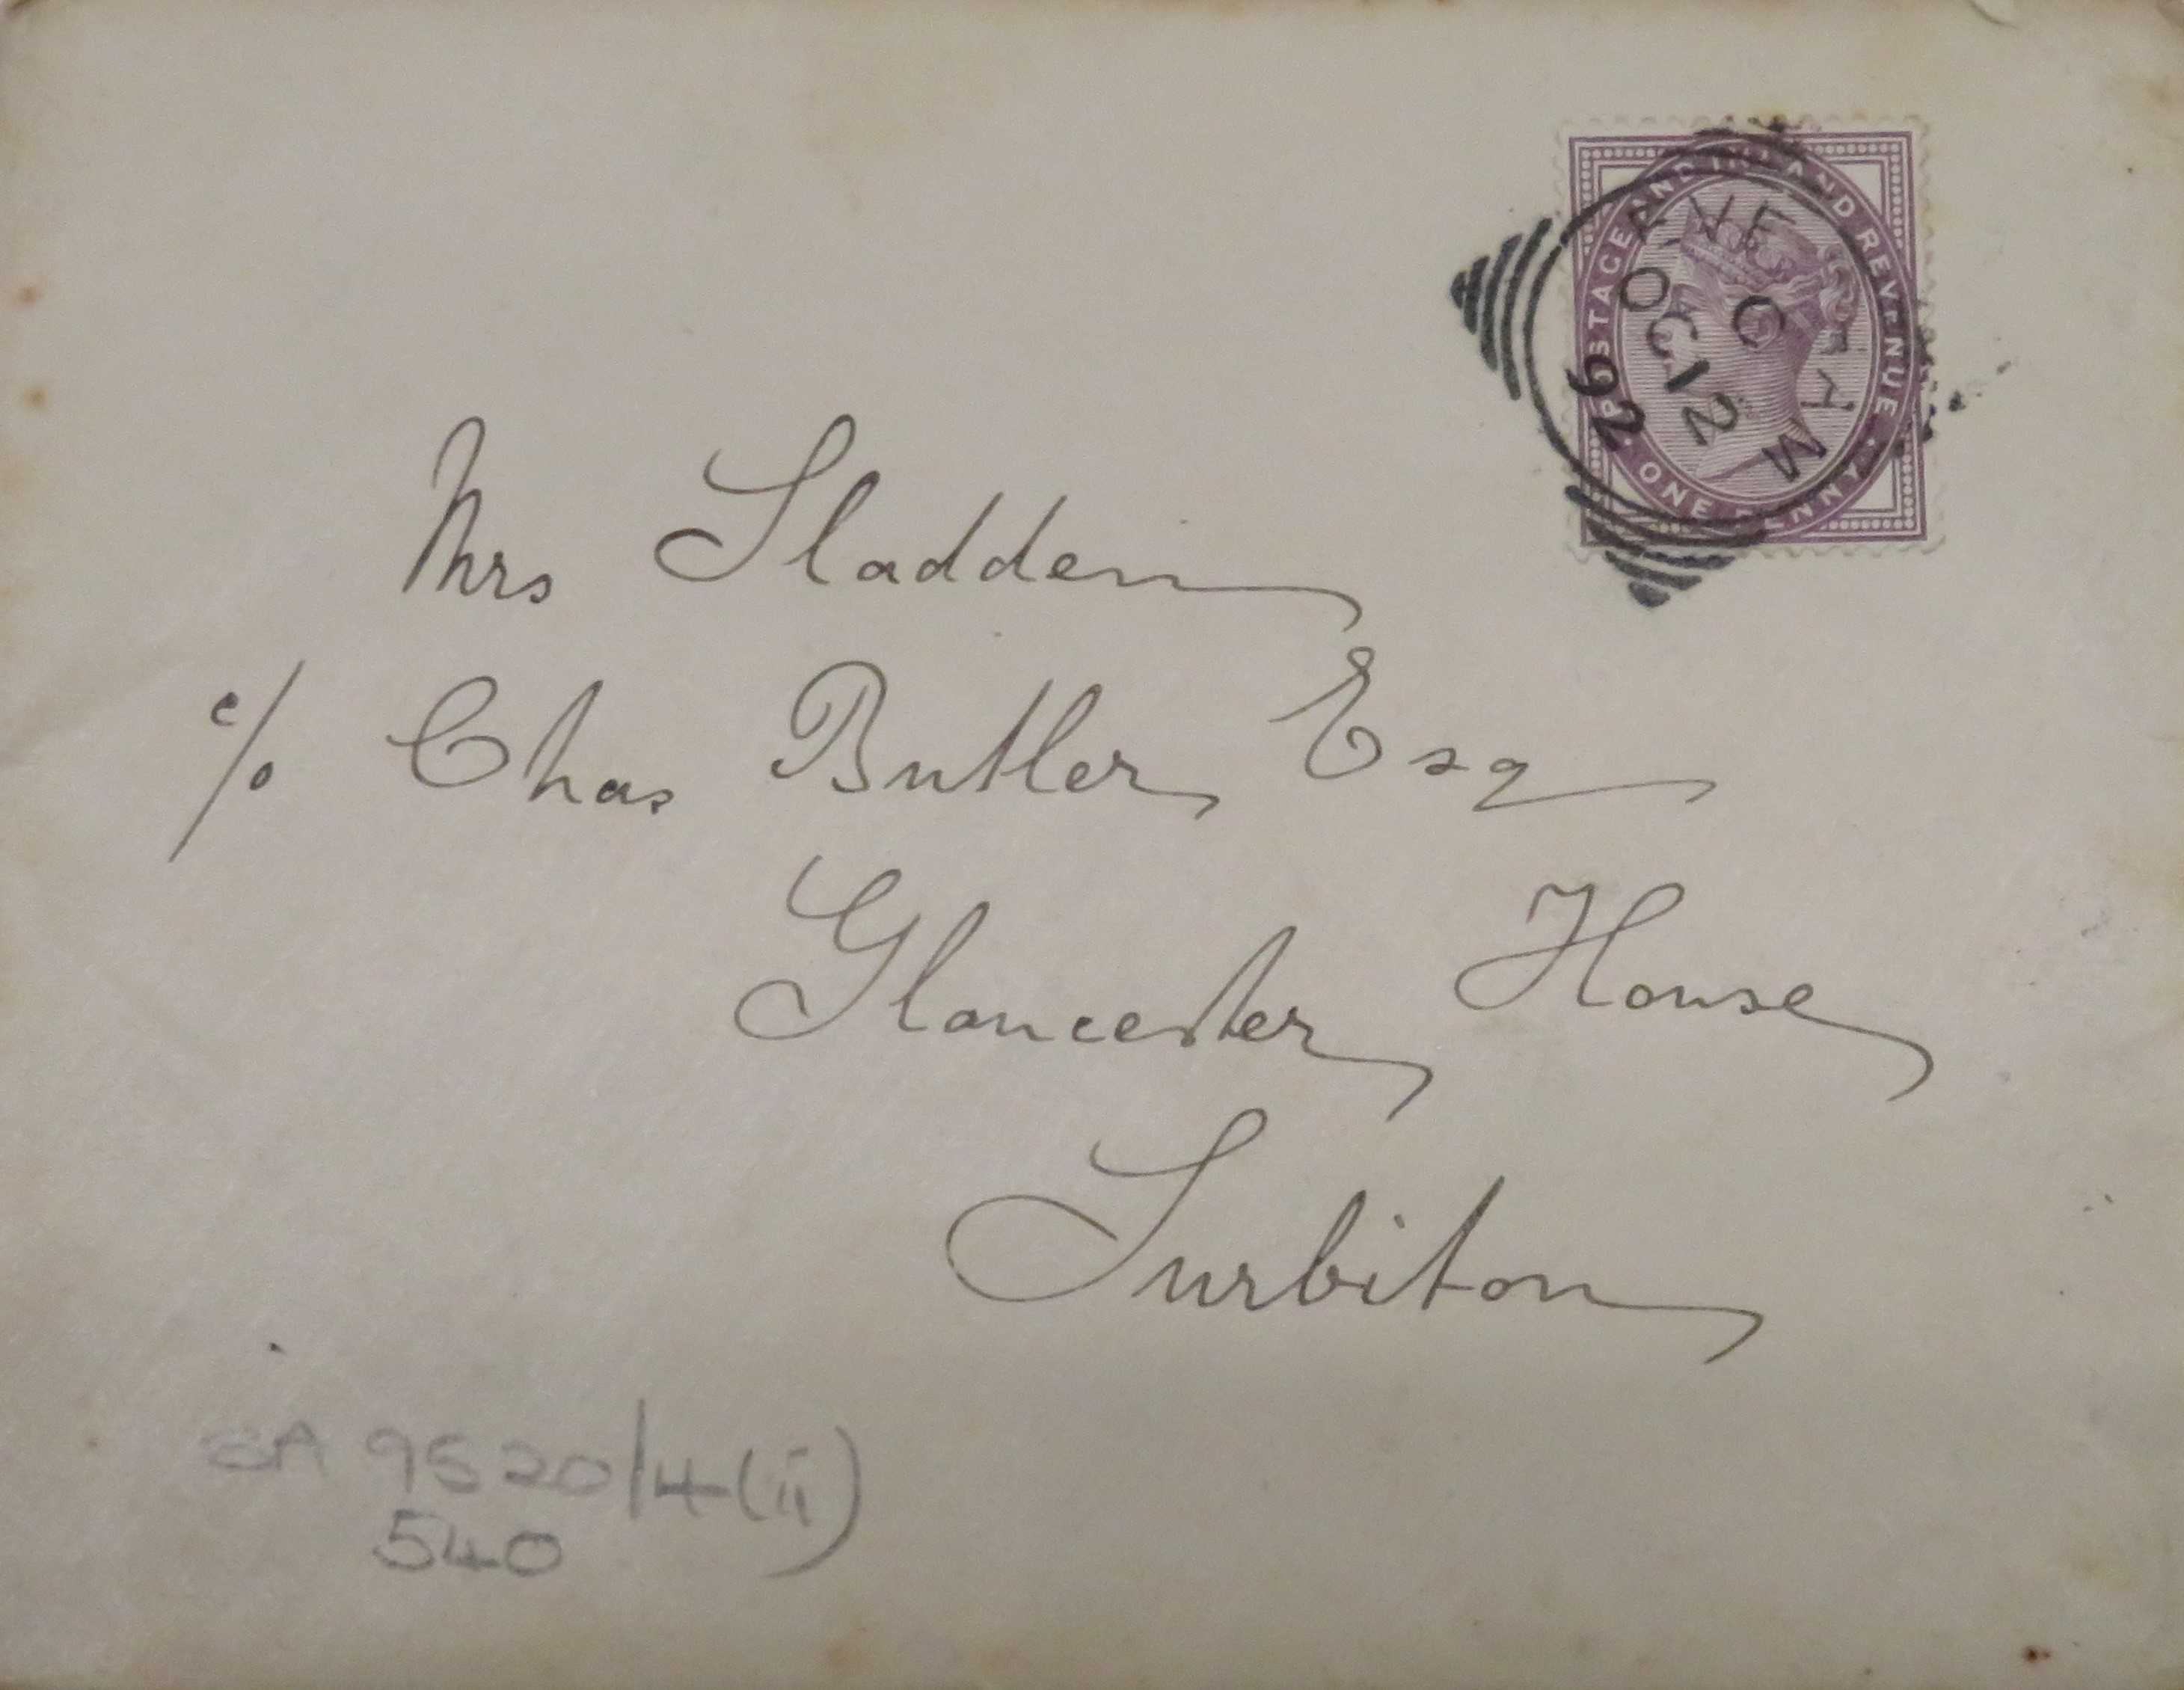 POSTAGE AND INLAND REVENUE
ONE PENNY
C
OC 12
92
Mrs Sladden
c/o Chas Butler Esq
Gloucester House
Surbiton
9520/4(ii)
540